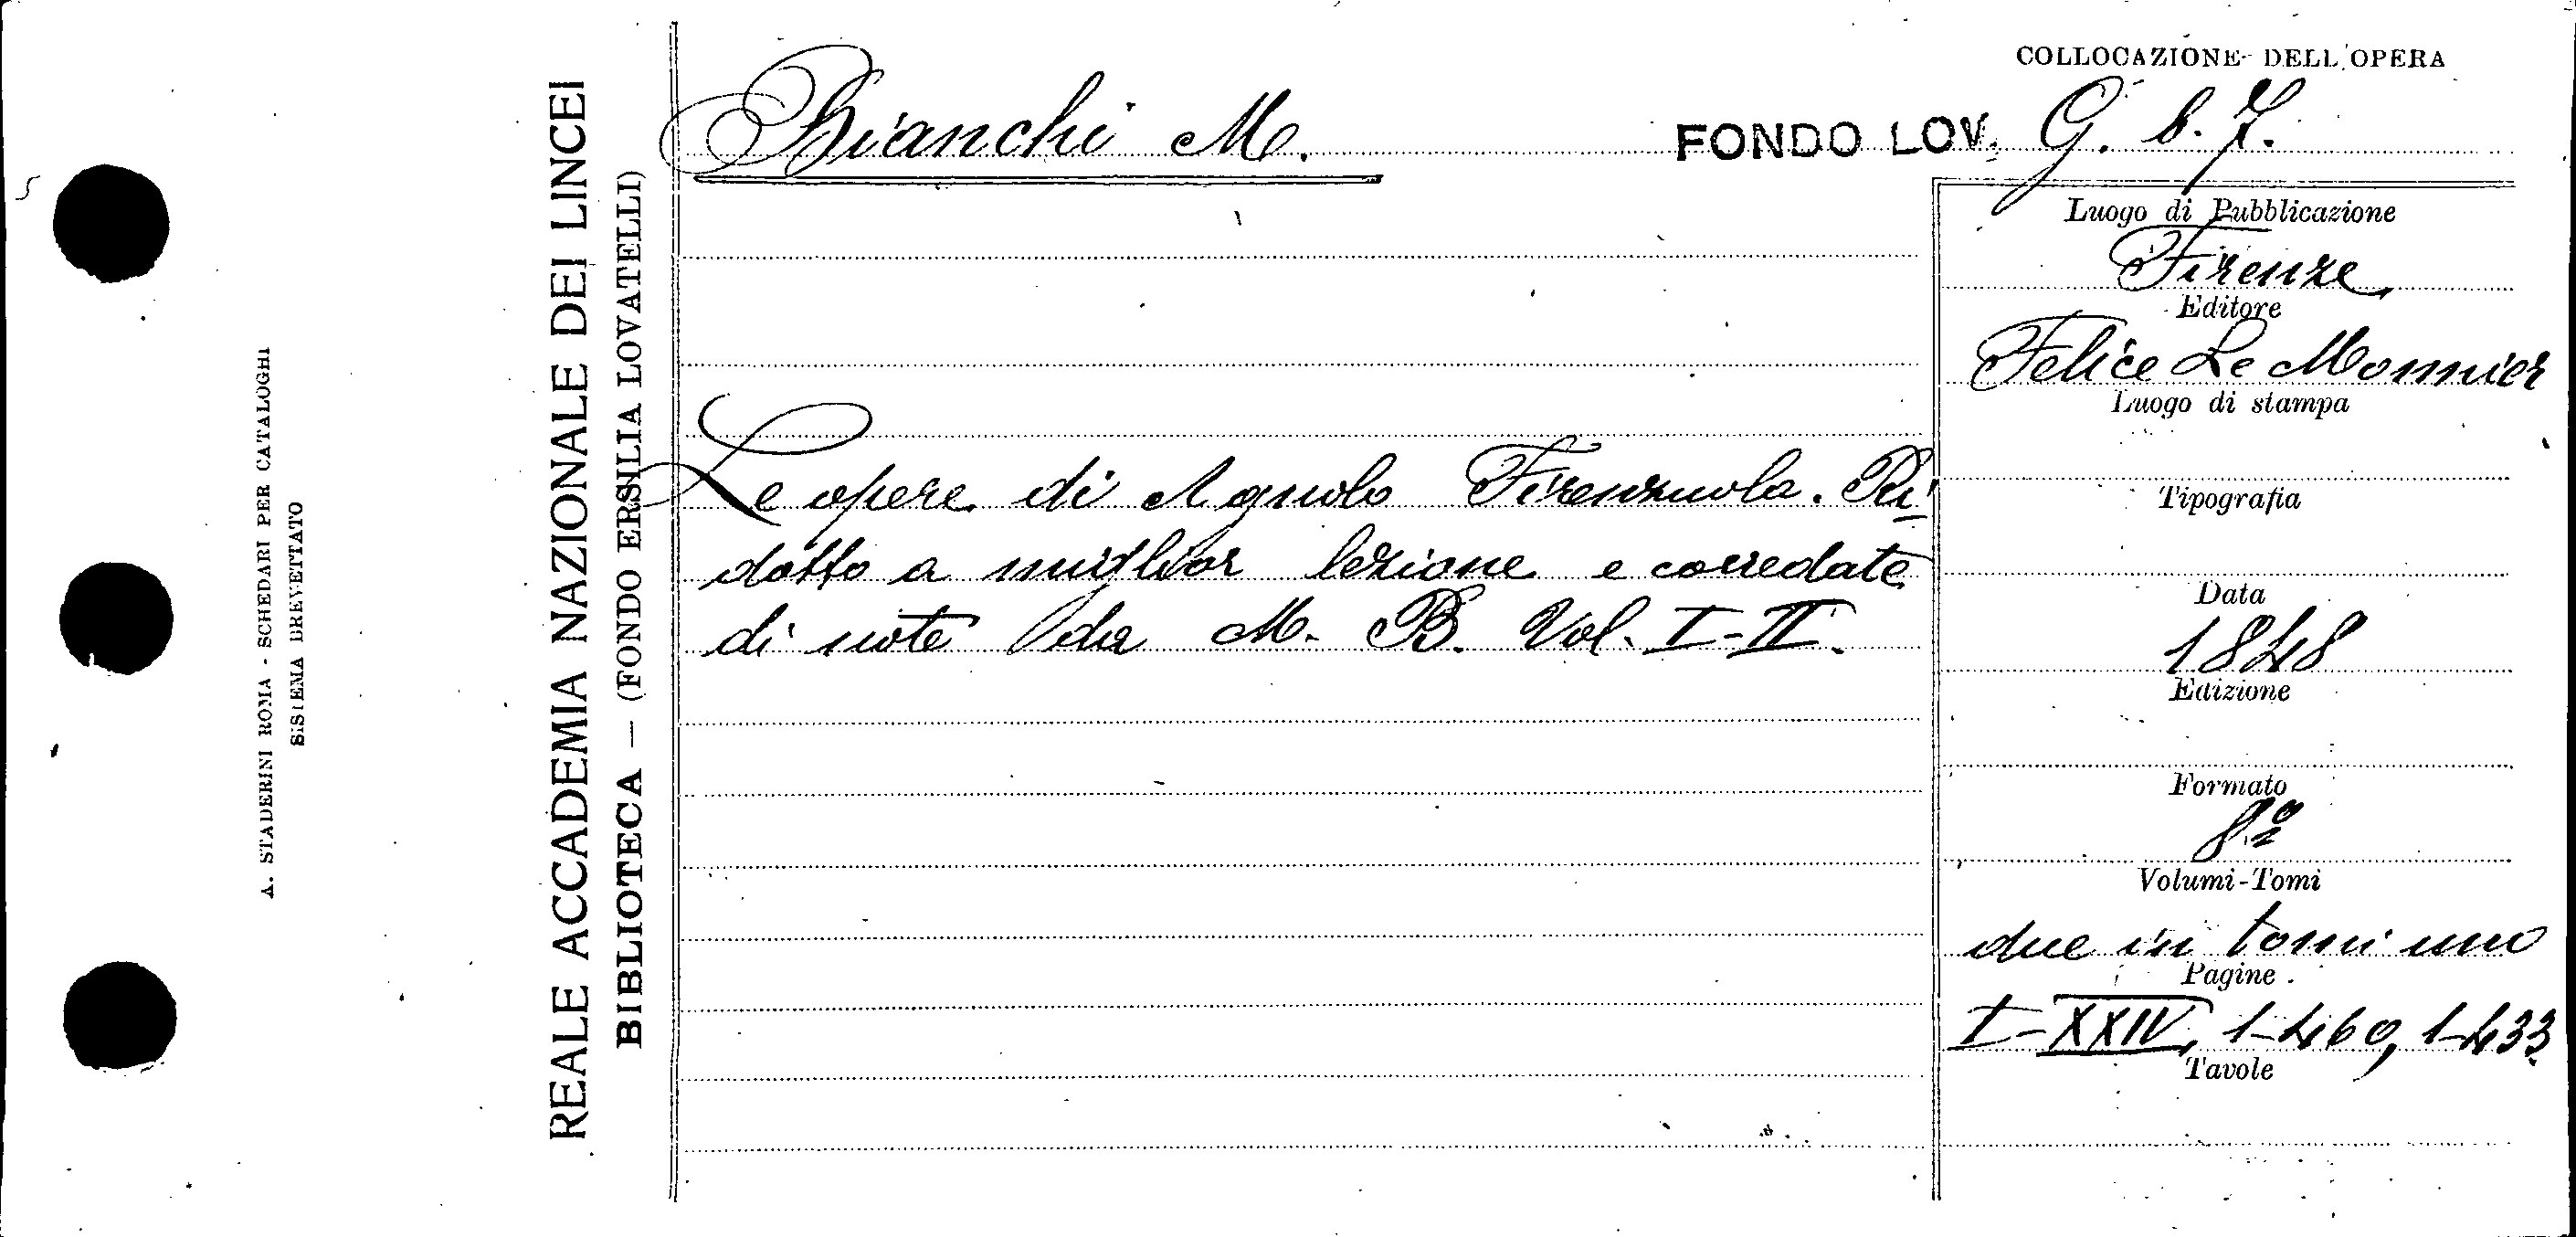 A. STADERINI ROMA - SCHEDARI PER CATALOGHI
SISTEMA BREVETTATO
REALE ACCADEMIA NAZIONALE DEI LINCEI
BIBLIOTECA — (FONDO ERSILIA LOVATELLI)
Bianchi M.
Le opere di Agnolo Firenzuola. Ri-
dotto a miglior lezione e corredate
di note da M. B. Vol. I-II.
COLLOCAZIONE DELL'OPERA
FONDO LOV. G. b. 7.
Luogo di Pubblicazione
Firenze
Editore
Felice Le Monnier
Luogo di stampa
Tipografia
Data
1848
Edizione
Formato
8º
Volumi-Tomi
due in tomi uno
Pagine
I-XXIV, 1-460, 1-433
Tavole